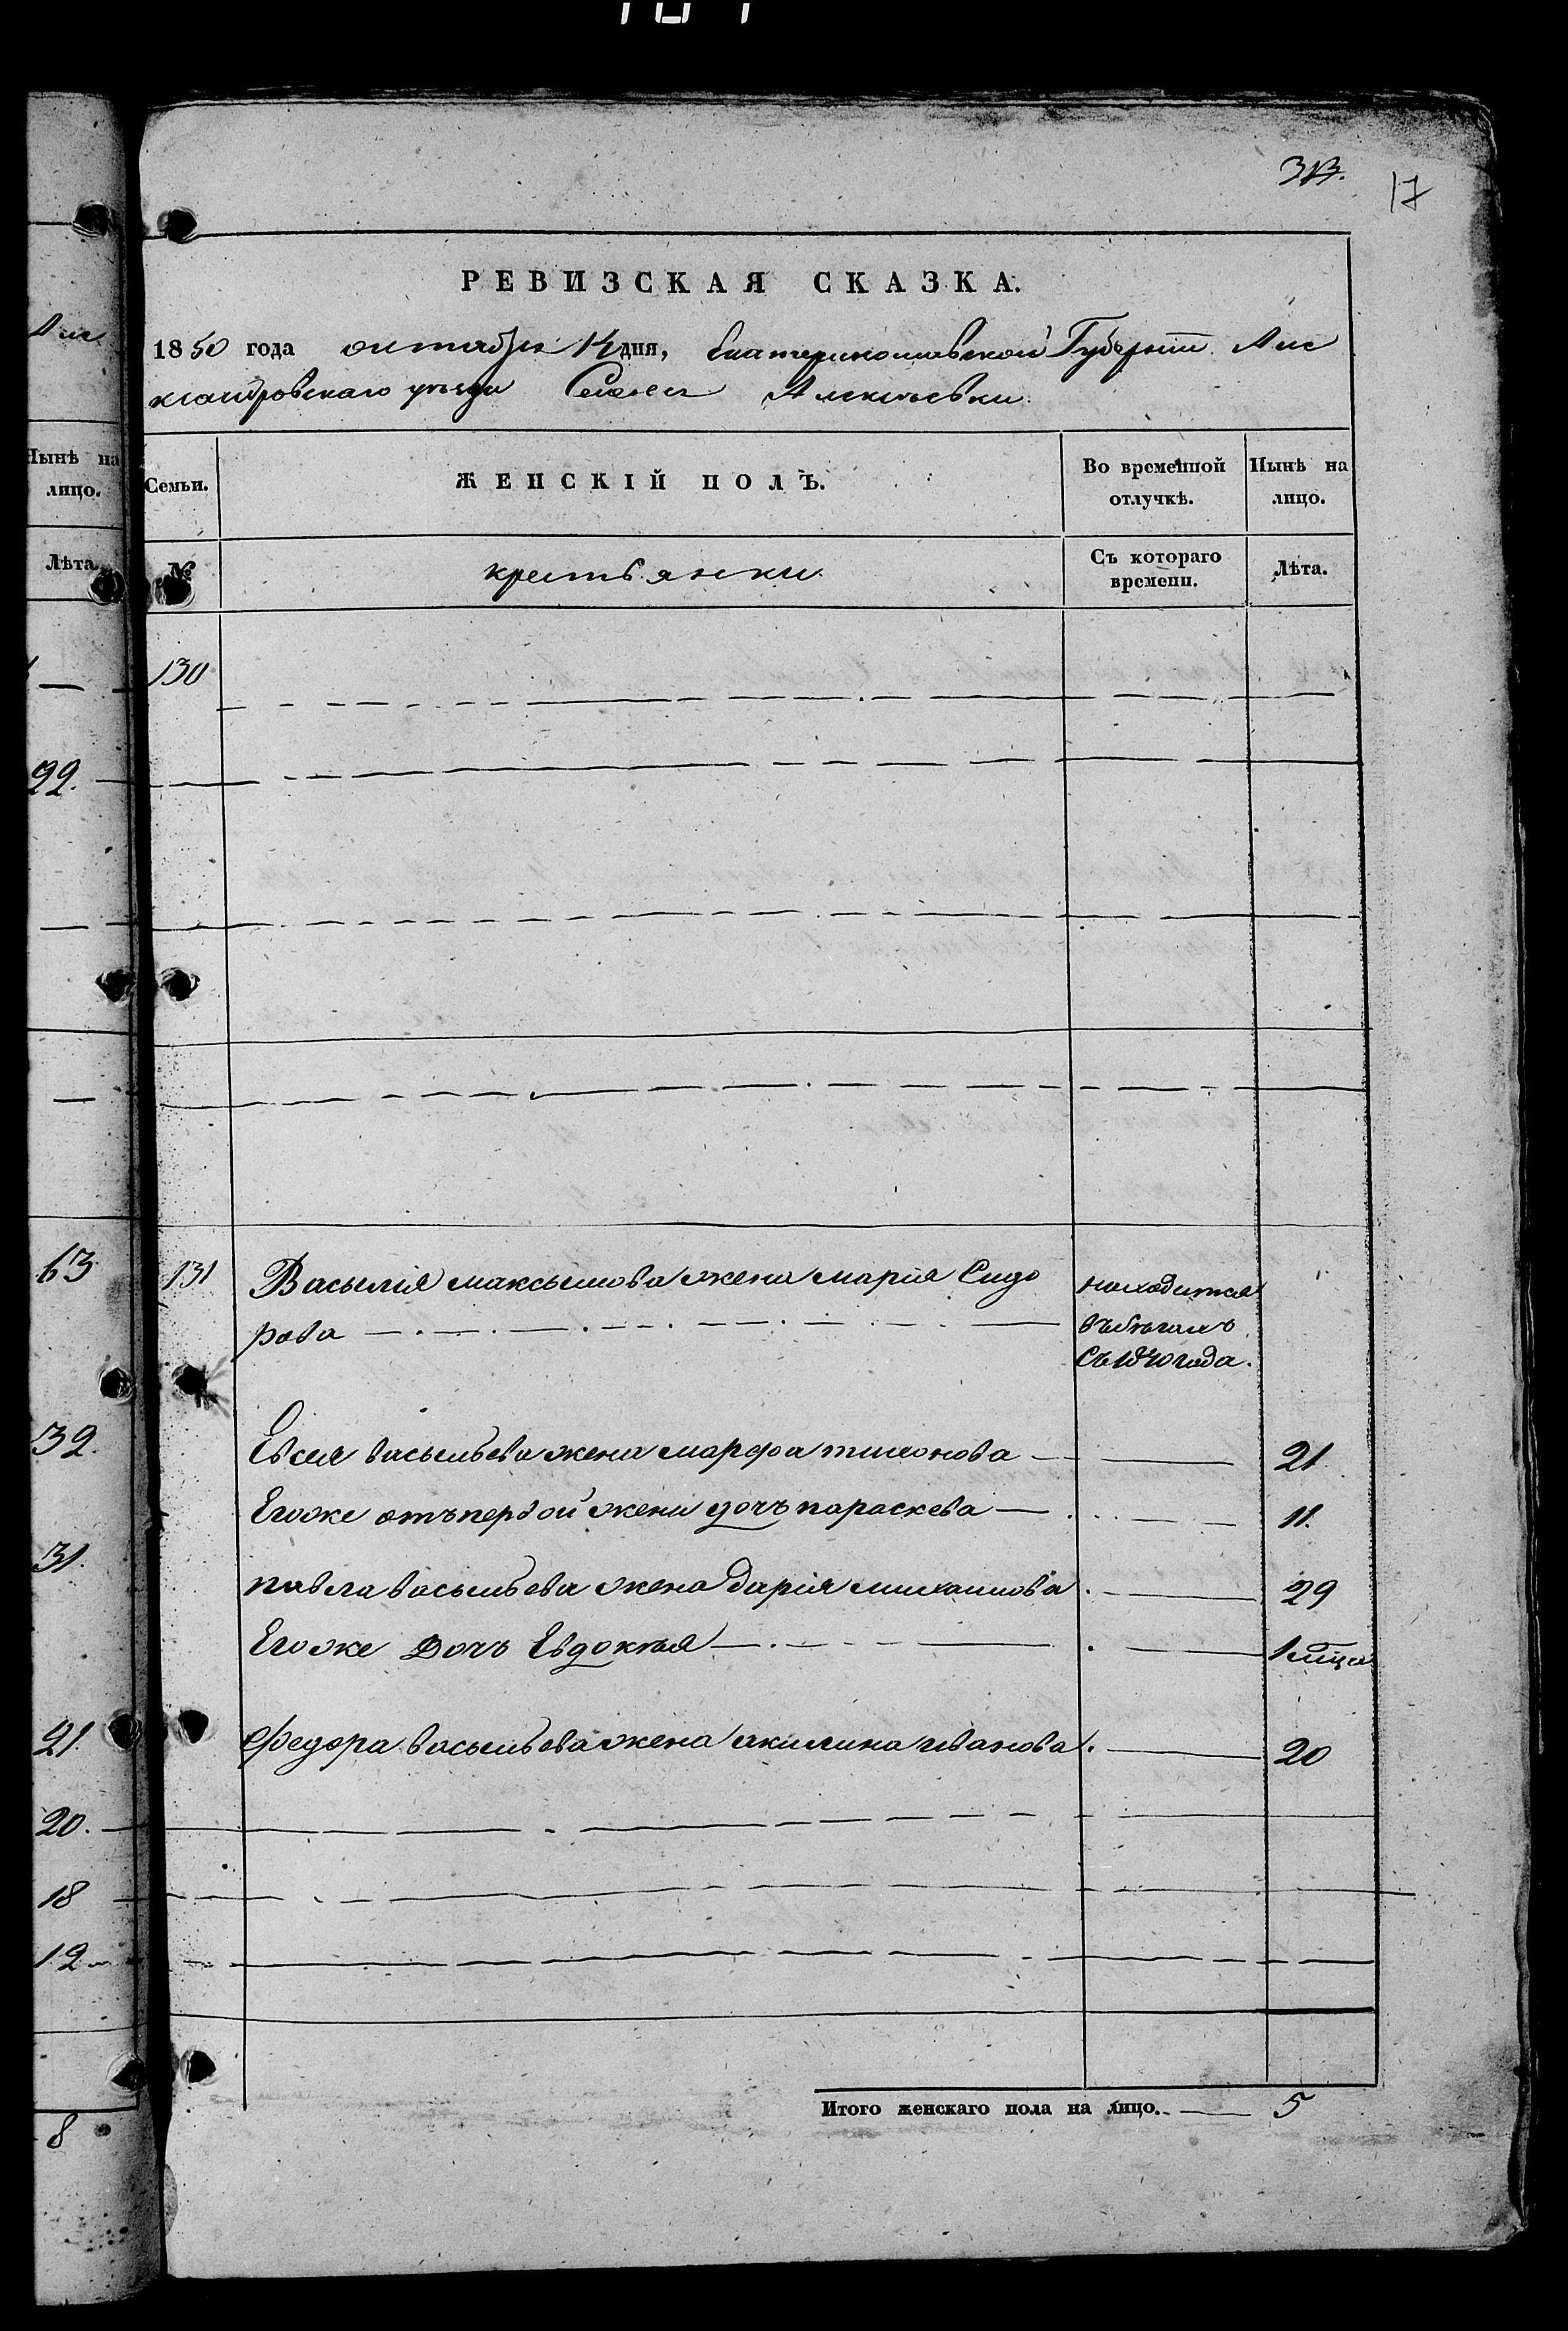 313. 17
РЕВИЗСКАЯ СКАЗКА.
1850 года октября 14 дня, Екатеринославской Губернии Алек
сандровскаго уезда Алексеевки.
Нынѣ на
лицо.
Лѣта.
Семьи. ЖЕНСКІЙ ПОЛЪ. Во временной отлучкѣ. Нынѣ на лицо.
№ крестьянки Съ котораго времени. Лѣта.
130
99.
63 131 Васылія максымова жена марія Сидо находится
рова въбегахъ
Съ 1840 года.
32. Евсея васыльева жена марфа тимонова 21
Егоже отъ первой жены дочъ параскева 11.
31. павла васыльева жена дарія михаилова 29
Егоже Дочъ Евдокѣя 1 мѣца
21. Федора васыльева жена акилина иванова 20
20.
18
12
Итого женскаго пола на лицо. 5
8